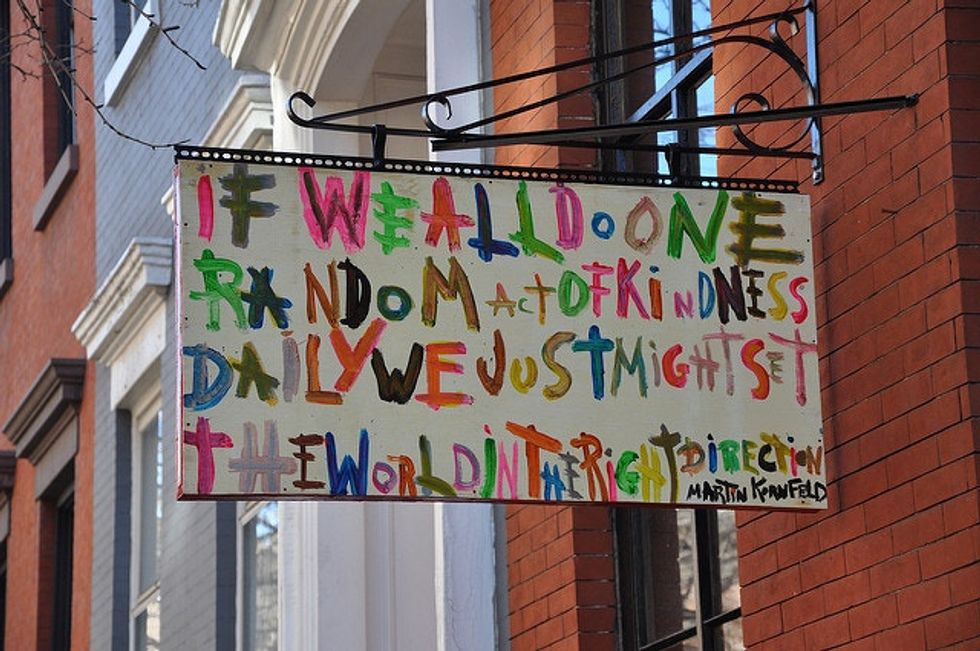 IF WE ALL DO ONE
RANDOM ACT OF KiNDNESS
DAILY WE JUST MiGHT SET
THE WORLD IN THE RiGHT DiRECTION
MARTIN KORNFELD